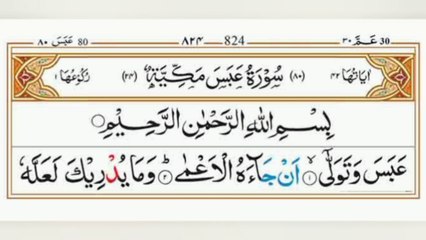 ٨٠ عَبَسَ 80 ٨٢٤ 824 ٣٠ عَمَّ 30
اٰيَاتُهَا ٤٢ (٨٠) سُوْرَةُ عَبَسَ مَكِّيَّةٌ (٢٤) رُكُوْعُهَا ١
بِسْمِ اللّٰهِ الرَّحْمٰنِ الرَّحِيْمِ
عَبَسَ وَتَوَلّٰٓى ۙ‏﴿۱﴾ اَنْ جَآءَهُ الْاَعْمٰى ؕ‏﴿۲﴾ وَمَا يُدْرِيْكَ لَعَلَّهٗ